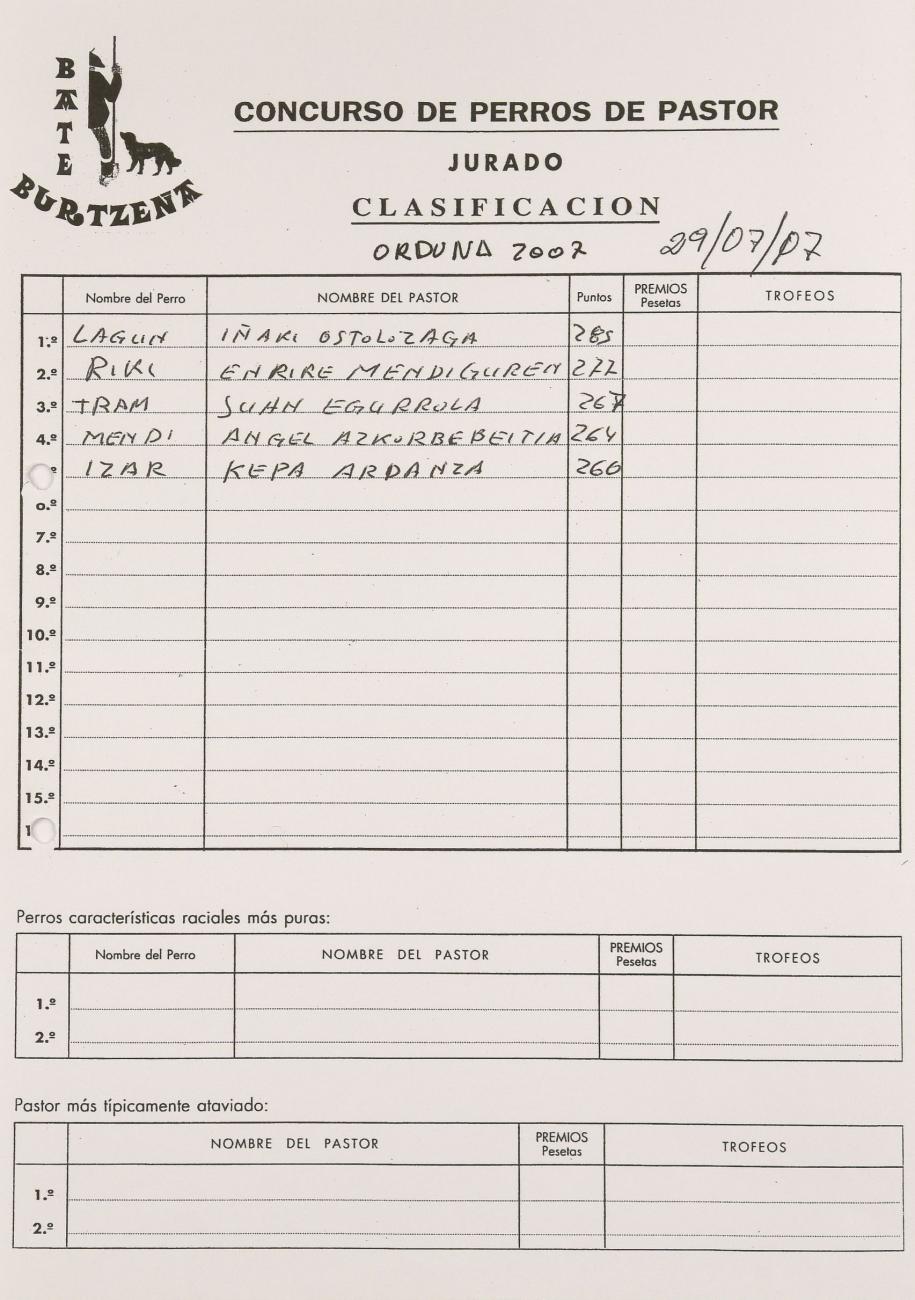 BATE
BURTZEÑA
CONCURSO DE PERROS DE PASTOR
JURADO
CLASIFICACION
ORDUNA 2007 29/07/07
Nombre del Perro NOMBRE DEL PASTOR Puntos PREMIOS Pesetas TROFEOS
1.º LAGUN IÑAKI OSTOLOZAGA 285
2.º RIKI ENRIRE MENDIGUREN 277
3.º TRAM JUAN EGURROLA 267
4.º MENDI ANGEL AZKORBEBEITIA 264
º IZAR KEPA ARDANZA 260
o.º
7.º
8.º
9.º
10.º
11.º
12.º
13.º
14.º
15.º
1
Perros características raciales más puras:
Nombre del Perro NOMBRE DEL PASTOR PREMIOS Pesetas TROFEOS
1.º
2.º
Pastor más típicamente ataviado:
NOMBRE DEL PASTOR PREMIOS Pesetas TROFEOS
1.º
2.º